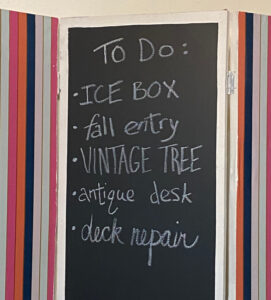 To Do:
· ICE BOX
· fall entry
· VINTAGE TREE
· antique desk
· deck repair